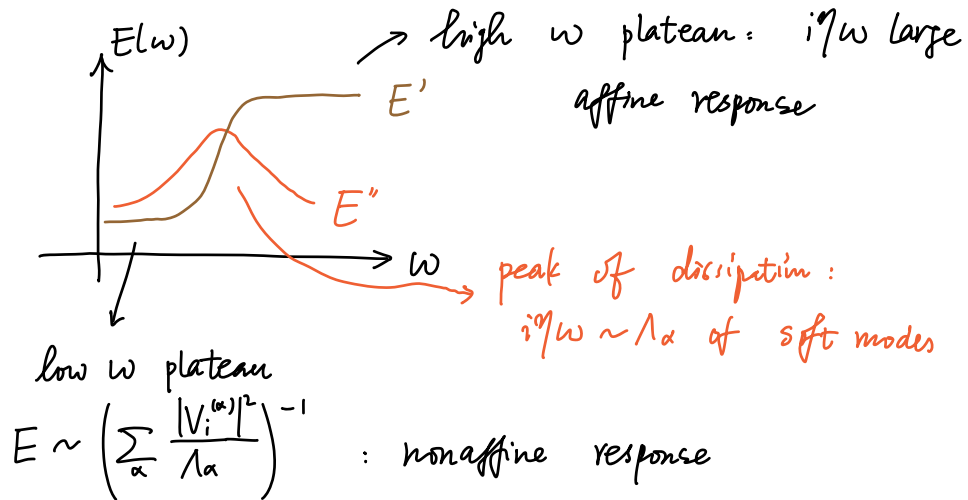 E(ω)
high ω plateau: iηω large
affine response
E'
E"
ω
peak of dissipation:
iηω ~ Λα of soft modes
low ω plateau
E ~ (∑α |Vi(α)|² / Λα)⁻¹ : nonaffine response